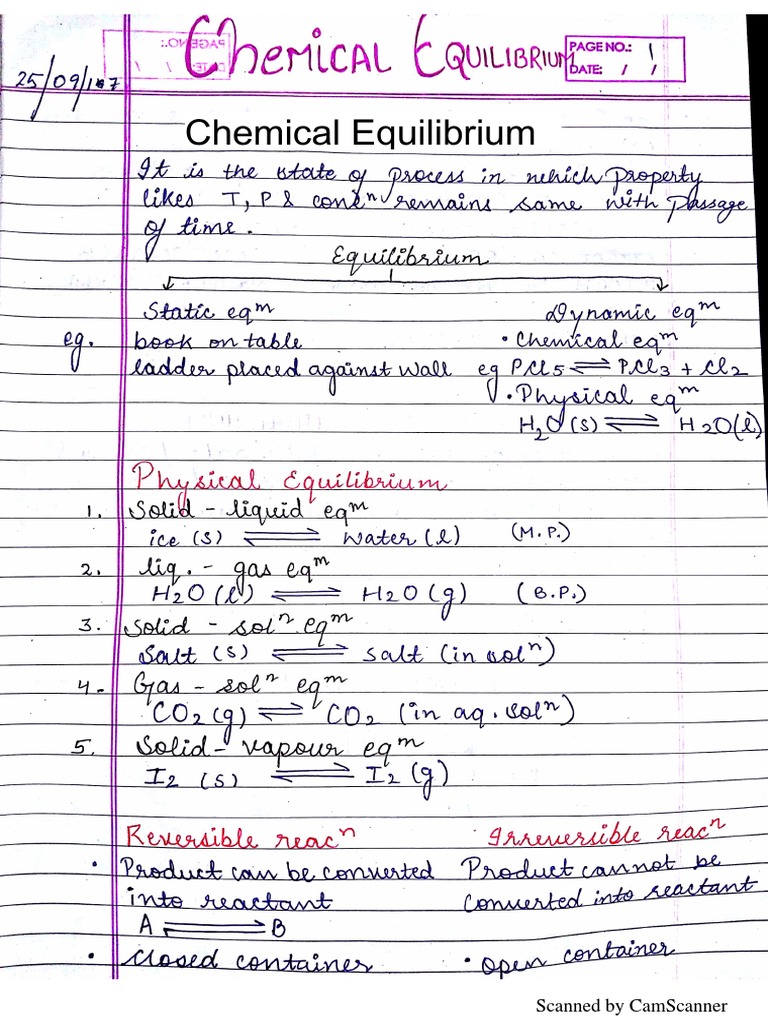 Chemical Equilibrium
PAGE NO.: 1
DATE: / /
25/09/17
Chemical Equilibrium
It is the state of process in which property
likes T, P & concⁿ remains same with passage
of time.
Equilibrium
Static eqᵐ Dynamic eqᵐ
eg. book on table • Chemical eqᵐ
ladder placed against wall eg PCl5 ⇌ PCl3 + Cl2
• Physical eqᵐ
H2O (s) ⇌ H2O(l)
Physical Equilibrium
1. Solid - liquid eqᵐ
ice (s) ⇌ water (l) (M.P.)
2. liq. - gas eqᵐ
H2O (l) ⇌ H2O (g) (B.P.)
3. Solid - solⁿ eqᵐ
Salt (s) ⇌ salt (in solⁿ)
4. Gas - solⁿ eqᵐ
CO2 (g) ⇌ CO2 (in aq. solⁿ)
5. Solid - vapour eqᵐ
I2 (s) ⇌ I2 (g)
Reversible reacⁿ Irreversible reacⁿ
• Product can be converted Product cannot be
into reactant converted into reactant
A ⇌ B
• closed container • open container
Scanned by CamScanner